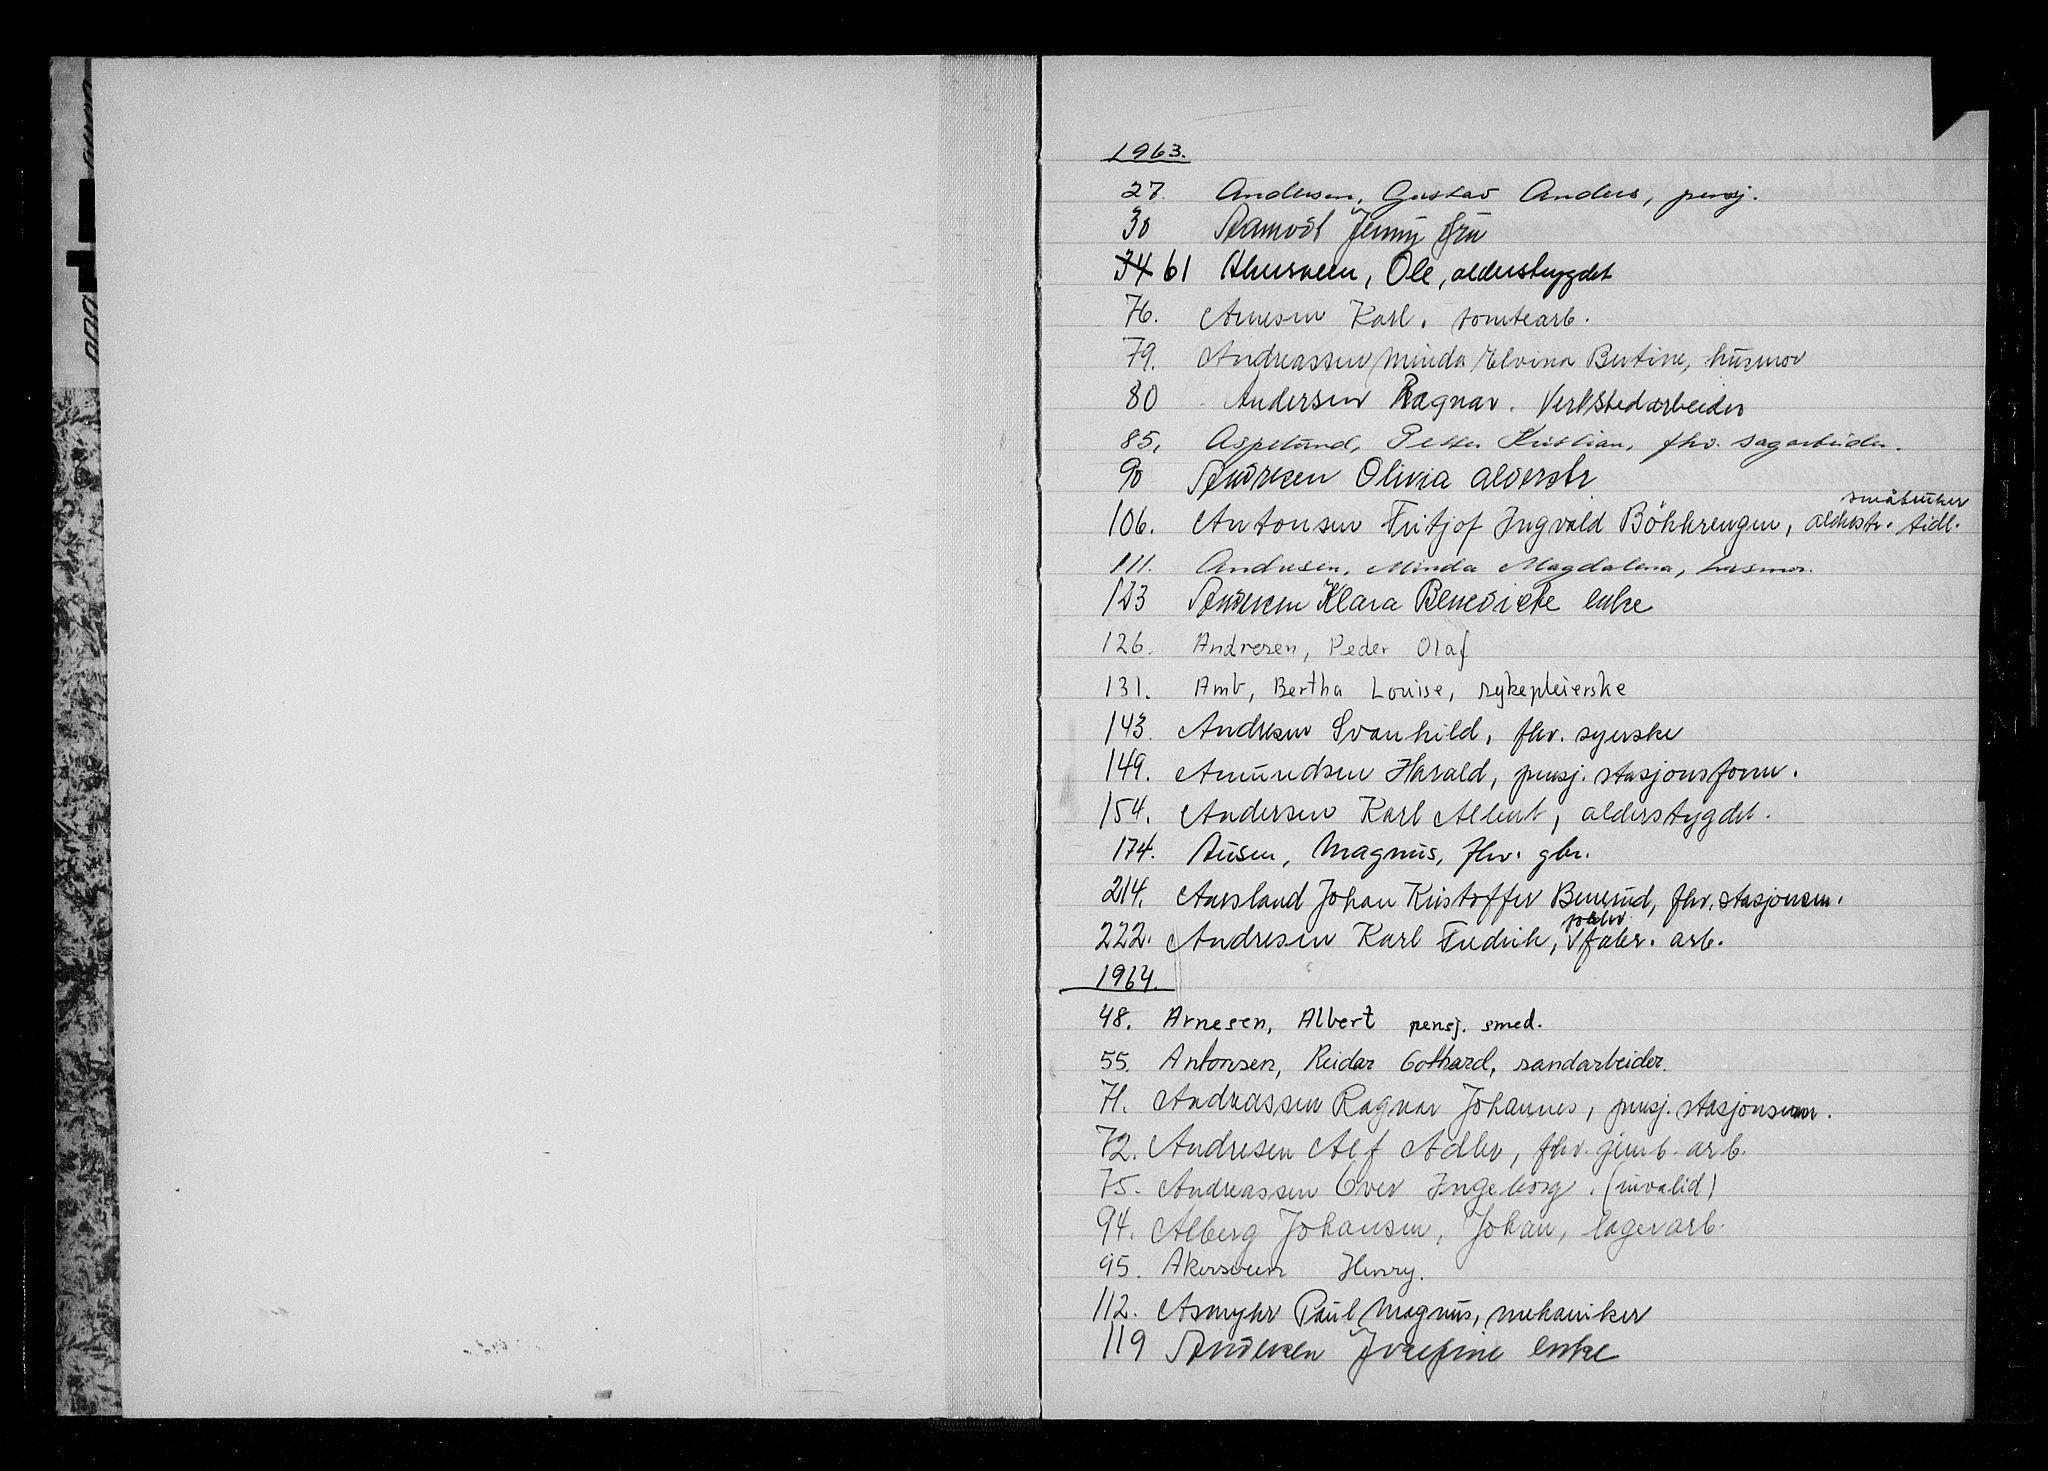 1963.
27. Andersen, Gustav Anders, pensj.
30 Aamodt Jenny fru
34 61 Akersveen, Ole, alderstrygdet
76. Arnesen Karl. tomtearb.
79. Andreassen Minda Elvina Bertine, husmor
80 Andersen Ragnar. Verkstedarbeider
85. Aspelund, Petter Kristian, fhv. sagarbeider.
90 Andresen Olivia alderstr
småbruker
106. Antonsen Fritjof Ingvald Böhkrengen, alderstr. tidl.
111. Andresen, Minda Magdalena, husmor.
123 Andersen Klara Benedicte enke
126. Andresen, Peder Olaf
131. Amb, Bertha Louise, sykepleierske
143. Andresen Svanhild, fhv. syerske
149. Amundsen Harald, pensj. stasjonsform.
154. Andersen Karl Albert, alderstygdet.
174. Ausen, Magnus, fhv. gbr.
214. Aarsland Johan Kristoffer Benerud, fhv. stasjonsm.
222. Andresen Karl Fredrik, fabr. arb.
1964.
48. Arnesen, Albert pensj. smed.
55. Antonsen, Reidar Gothard, sandarbeider.
71. Andreassen Ragnar Johannes, pensj. stasjonsm.
72. Andresen Alf Adler, fhv. jernb. arb.
75. Andreassen Ingeborg. (invalid)
94. Alberg Johansen, Johan, lagerarb.
95. Akersveen Henry.
112. Asmyhr Paul Magnus, mekaniker
119 Andersen Josefine enke